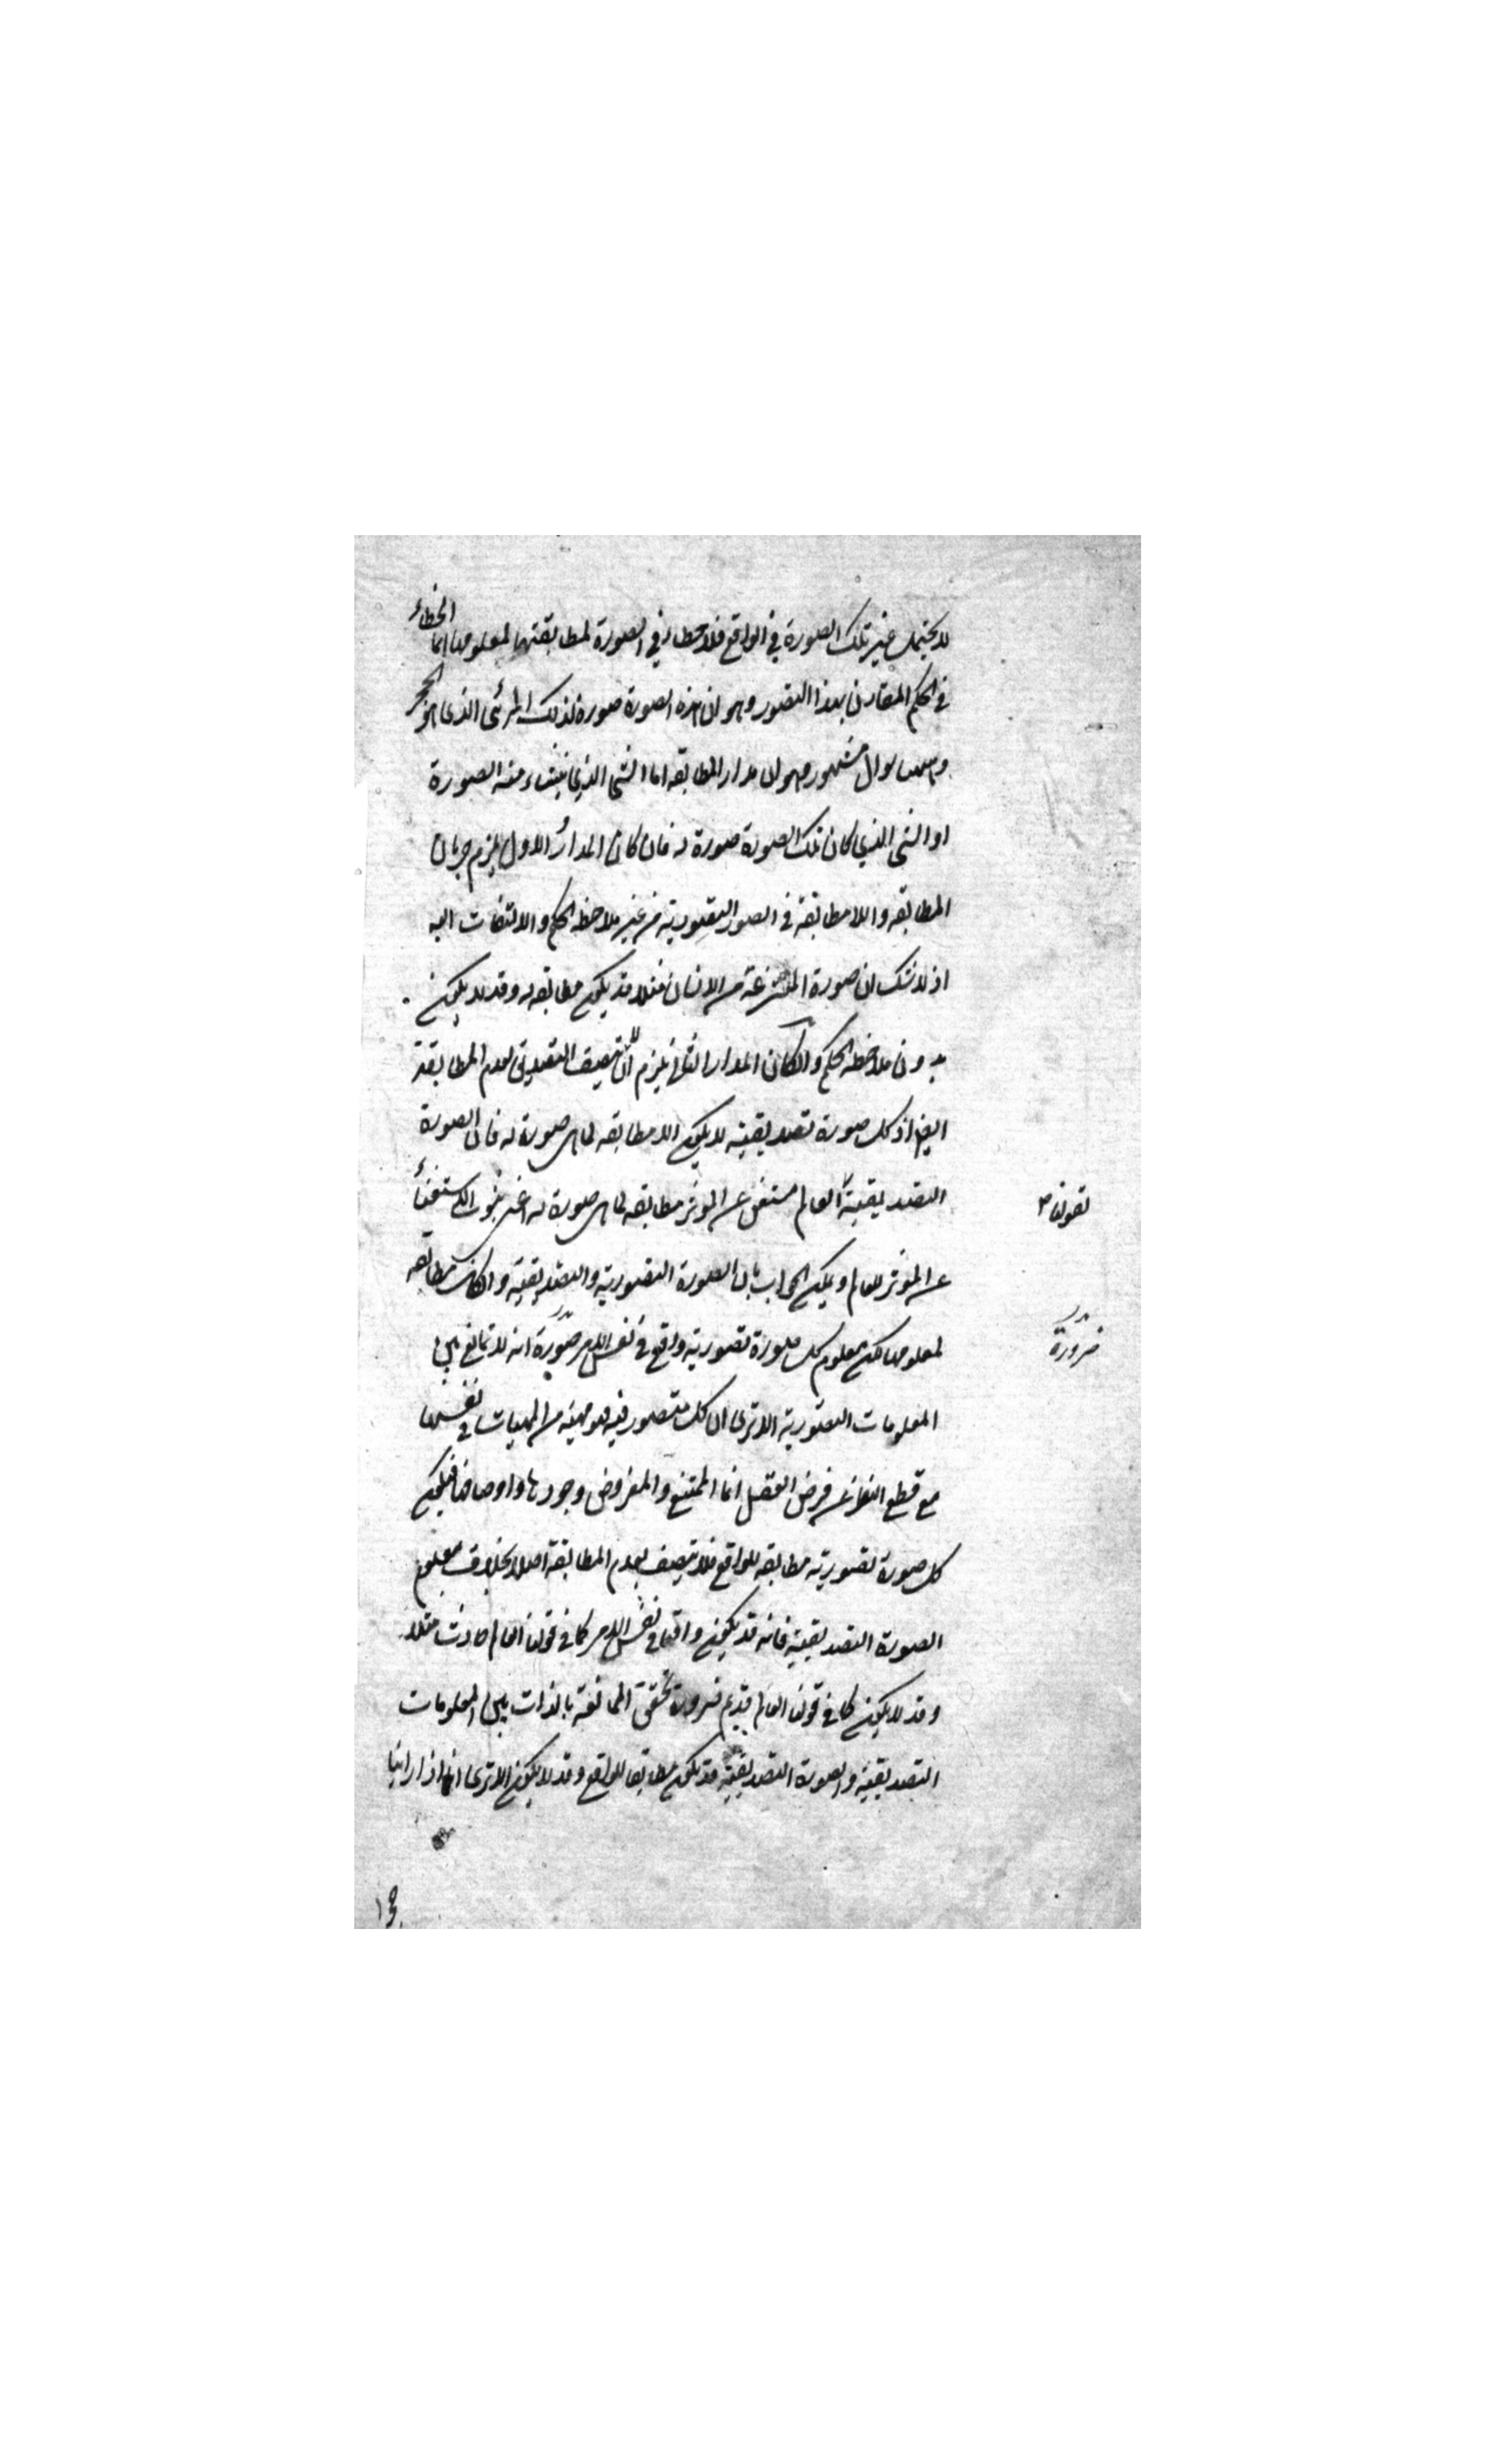 لا يحتمل غير تلك الصورة في الواقع فلا خطاء في الصورة لمطابقتها لمعلومها انما الخطاء
في الحكم المقارن بهذا التصور وهو ان هذه الصورة صورة لذلك المرئى الذي هو الحجر
وههنا سوال مشهور وهو ان مدار المطابقه اما الشى الذي ينشاء منه الصورة
او الشى الذي كان تلك الصورة صورة له فان كان المدار الاول يلزم جريان
المطابقه واللامطابقة في الصور التصورية من غير ملاحظه الحكم والالتفات اليه
اذ لا شك ان صورة المنتزعة من الانسان مثلا قد يكون مطابقه له وقد لا يكون
بدون ملاحظه الحكم وان كان المدار الثاني يلزم ان لا يتصف التصديق بعدم المطابقة
ايضا اذ كل صورة تصديقية لا يكون الا مطابقه لما هى صورة له فان الصورة
التصديقية لقولنا العالم مستغن عن الموثر مطابقه لما هى صورة له اعنى ثبوت الاستغناء
عن الموثر للعالم ويمكن الجواب بان الصورة التصورية والتصديقية وان كانت مطابقه
لمعلومها لكن معلوم كل صورة تصورية واقع في نفس الامر ضرورة انه لا تمانع بين
المعلومات التصورية الا ترى ان كل متصور فيه فهو مهية من المهيات في نفسها
مع قطع النظر عن فرض العقل انما الممتنع والمفروض وجودها واوصافها فيكون
كل صورة تصورية مطابقه للواقع فلا يتصف بعدم المطابقة اصلا بخلاف معلوم
الصورة التصديقية فانه قد يكون واقعا في نفس الامر كما في قولنا العالم حادث مثلا
وقد لا يكون كما في قولنا العالم قديم ضرورة تحقق الممانعة بالذات بين المعلومات
التصديقية والصورة التصديقية قد يكون مطابقا للواقع وقد لا يكون الا ترى انا اذا راينا
لقولنا
ضرورة